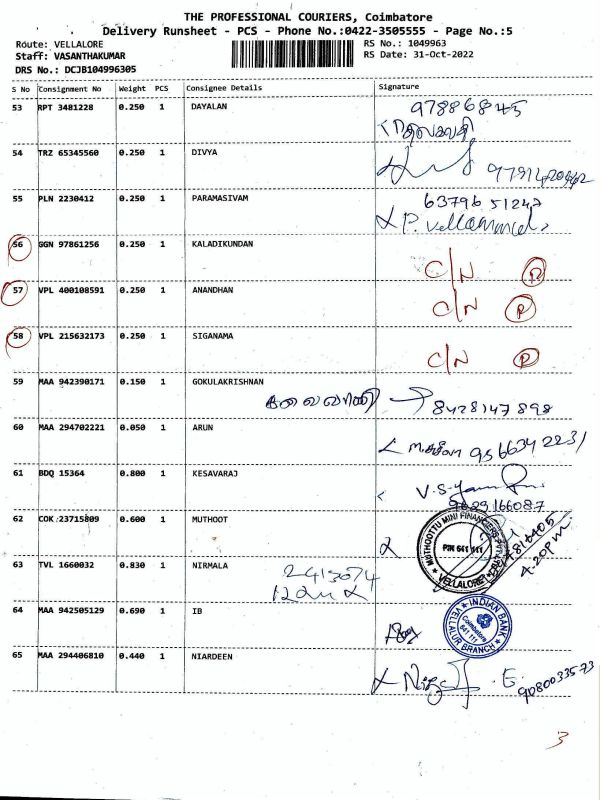 THE PROFESSIONAL COURIERS, Coimbatore
Delivery Runsheet - PCS - Phone No.:0422-3505555 - Page No.:5
Route: VELLALORE
RS No.: 1049963
Staff: VASANTHAKUMAR
RS Date: 31-Oct-2022
DRS No.: DCJB104996305
S No Consignment No Weight PCS Consignee Details Signature
53 RPT 3481228 0.250 1 DAYALAN
54 TRZ 65345560 0.250 1 DIVYA
55 PLN 2230412 0.250 1 PARAMASIVAM
63796 51247
P. Vellammal
56 GGN 97861256 0.250 1 KALADIKUNDAN C/N R
57 VPL 400108591 0.250 1 ANANDHAN C/N R
58 VPL 215632173 0.250 1 SIGANAMA C/N R
59 MAA 942390171 0.150 1 GOKULAKRISHNAN
கலைவாணி 8428147898
60 MAA 294702221 0.050 1 ARUN
9566342231
61 BDQ 15364 0.800 1 KESAVARAJ
9629166087
62 COK 23715809 0.600 1 MUTHOOT
MUTHOOTTU MINI FINANCIERS
PIN 641 111
VELLALORE
4.20pm
63 TVL 1660032 0.830 1 NIRMALA
2413074
64 MAA 942505129 0.690 1 IB
INDIAN BANK
Coimbatore
641 111
VELLALUR BRANCH
65 MAA 294406810 0.440 1 NIARDEEN
E.
9080033573
3